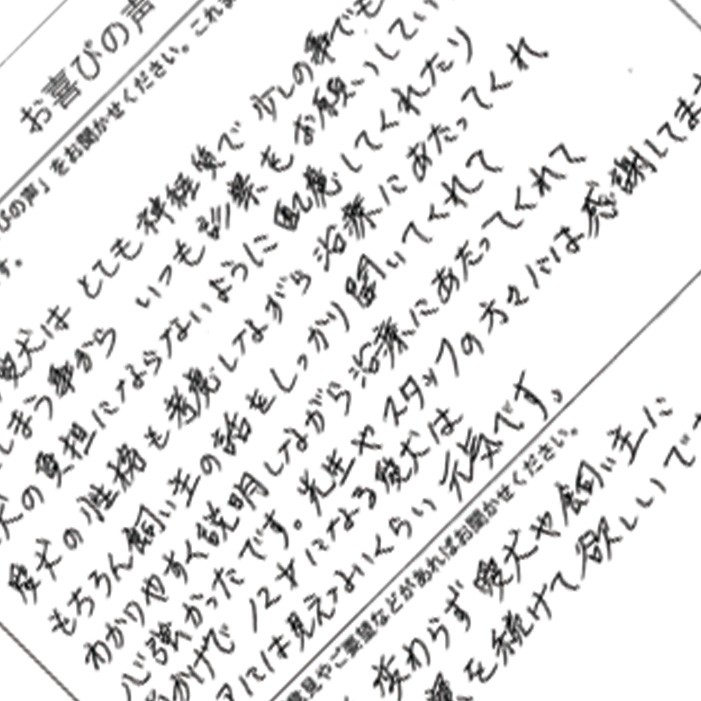 お喜びの声
びの声」をお聞かせください。これ
す。
愛犬は とても神経質で 少しの事でも
しまう事から いつも診察をお願いしてい
犬の負担にならないように配慮してくれたり
愛犬の性格も考慮しながら治療にあたってくれ、
もちろん飼い主の話をしっかり聞いてくれて
わかりやすく説明しながら治療にあたってくれて
心強かったです。先生やスタッフの方々には感謝してます
おかげで12才になる愛犬は
には見えないくらい元気です。
意見やご要望などがあればお聞かせください。
変わらず愛犬や飼い主に
を続けて欲しいです